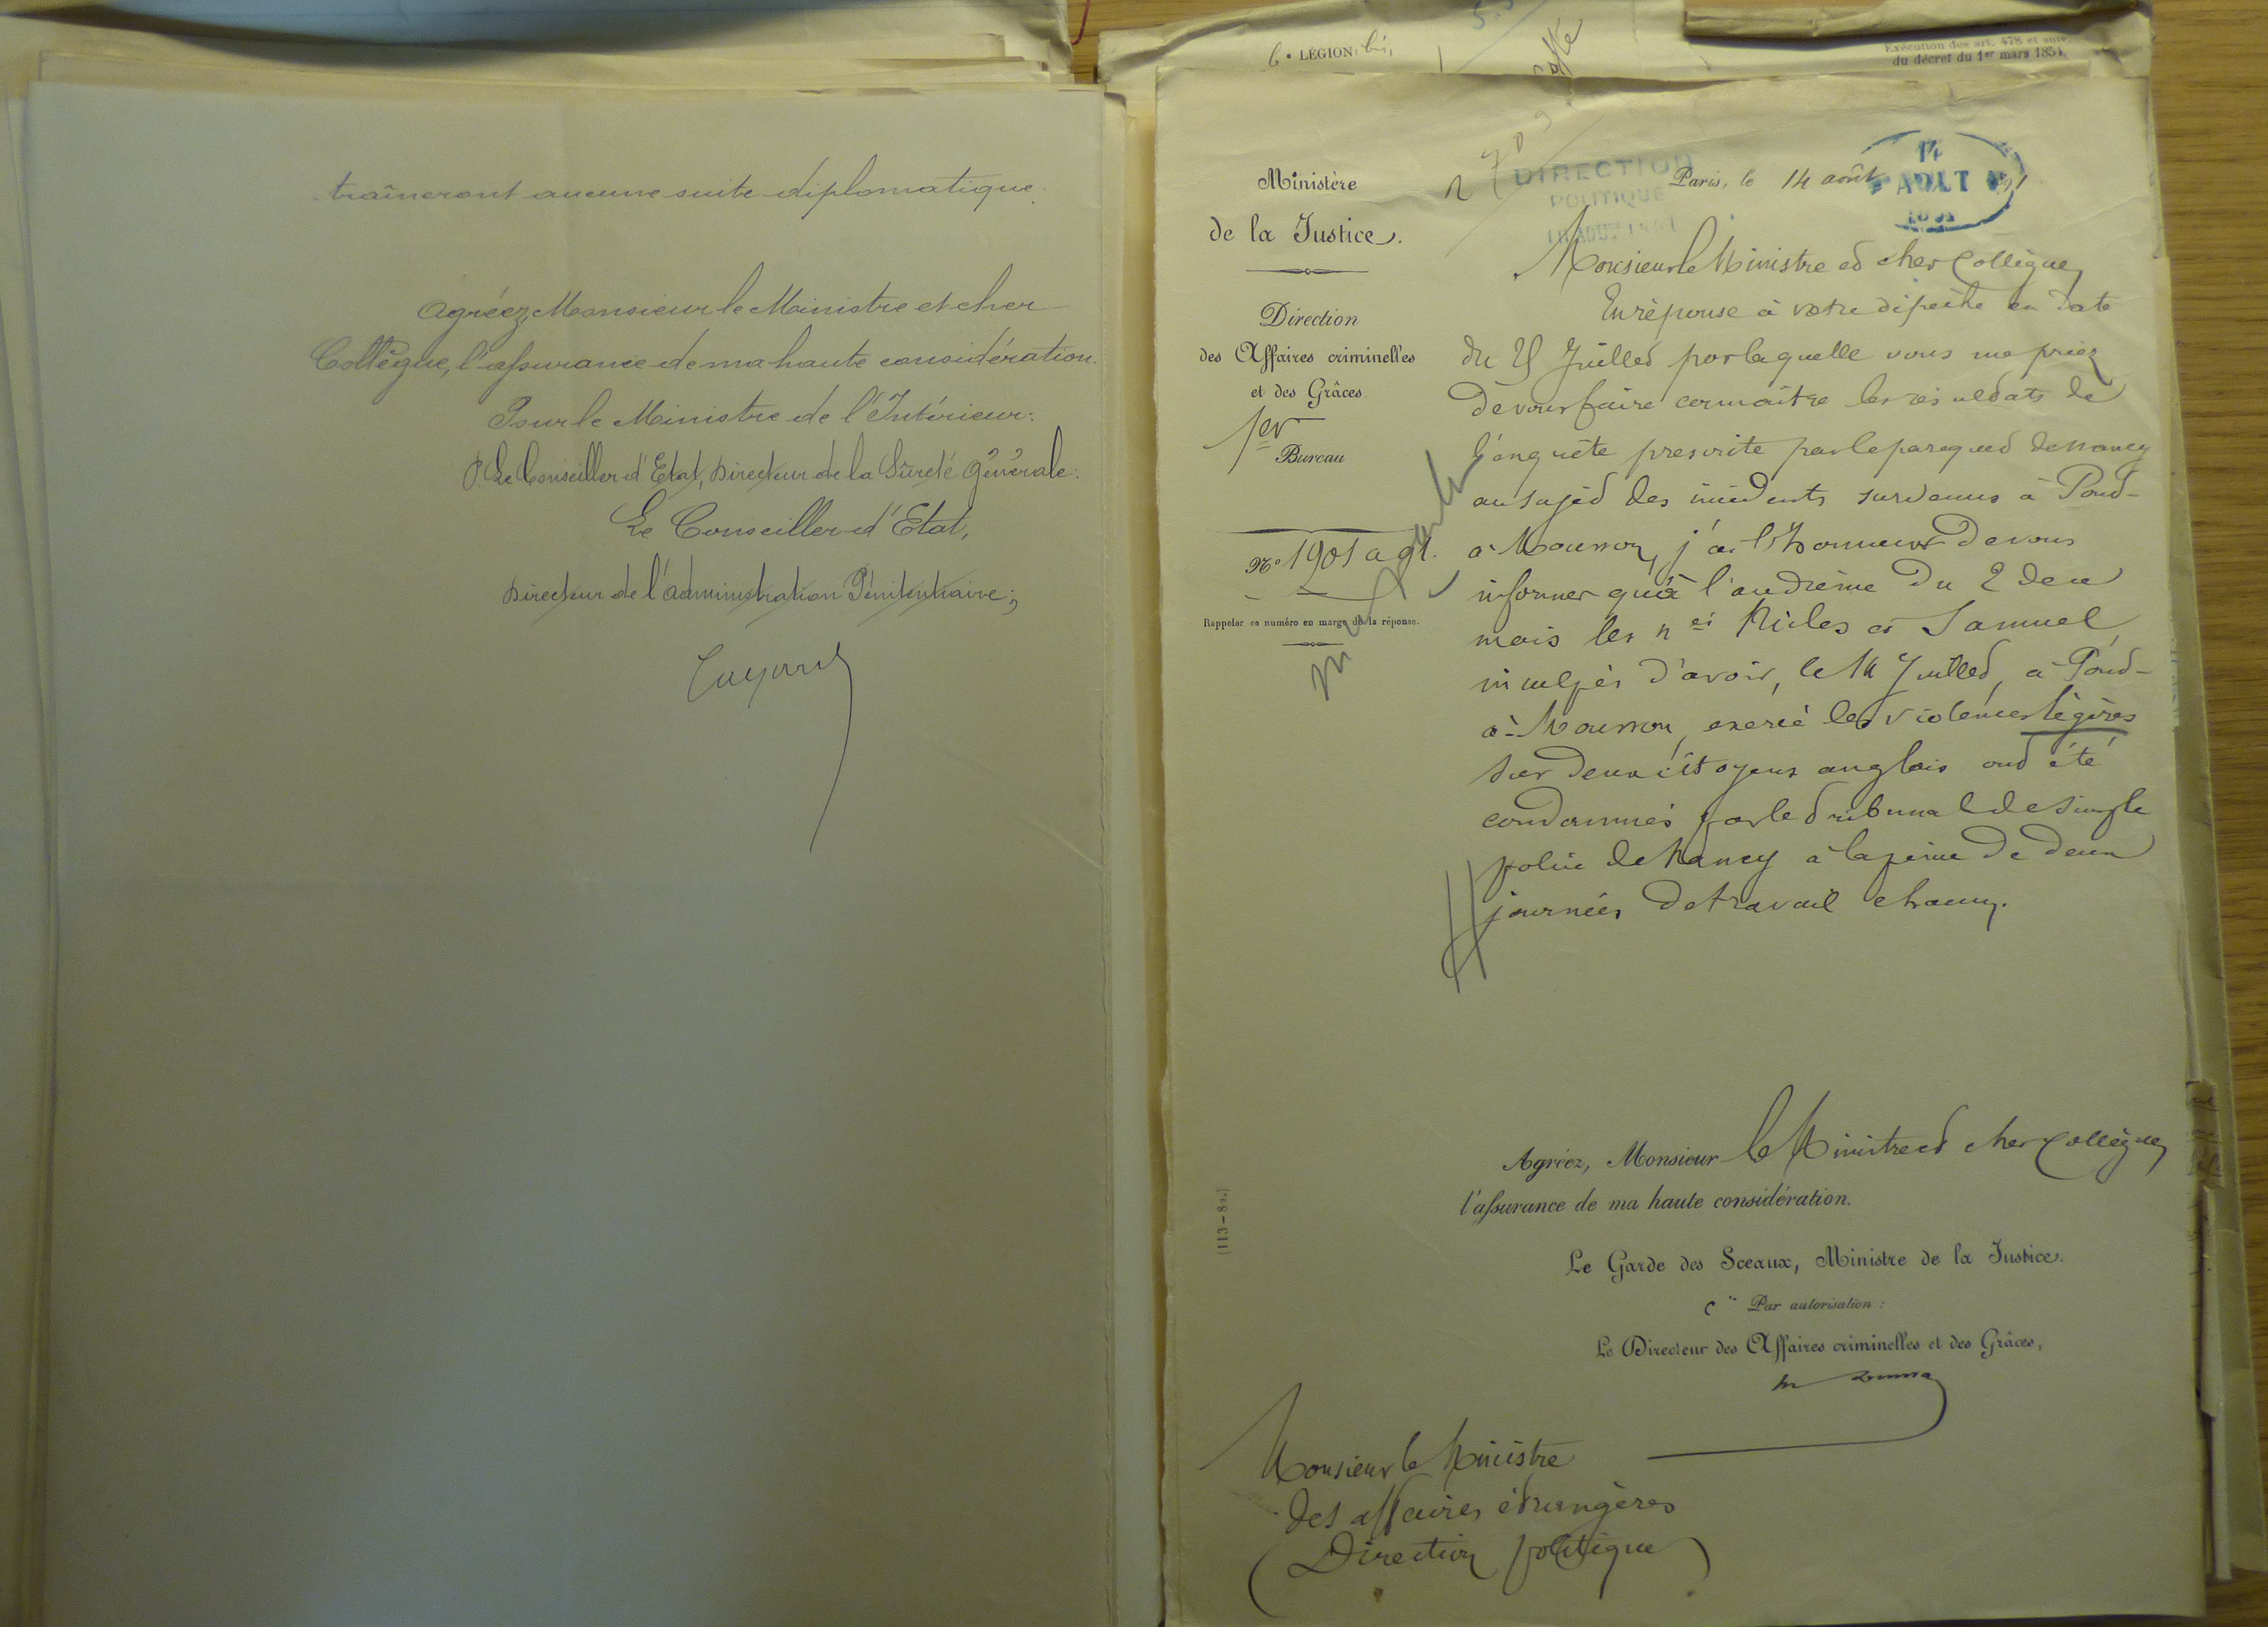 traîneront aucune suite diplomatique.
Agréez, Monsieur le Ministre et cher
Collègue, l'assurance de ma haute considération.
Pour le Ministre de l'Intérieur:
P. Le Conseiller d'Etat, Directeur de la Sûreté Générale:
Le Conseiller d'Etat,
Directeur de l'administration Pénitentiaire;
6e LÉGION bis,
Exécution des art. 478 et suiv.
du décret du 1er mars 1854.
Ministère
de la Justice.
Direction
des Affaires criminelles
et des Grâces
1er
Bureau
No 1901 a 91.
Rappeler ce numéro en marge de la réponse.
(113-82.)
DIRECTION
POLITIQUE
18 AOUT 1891
Paris, le 14 août 91
14
AOUT
1891
Monsieur le Ministre et cher Collègue,
En réponse à votre dépêche en date
du 25 Juillet par laquelle vous me priez
de vous faire connaître les résultats de
l'enquête prescrite par le parquet de Nancy
au sujet des incidents survenus à Pont-
à-Mousson, j'ai l'honneur de vous
informer qu'à l'audience du 2 de ce
mois les nés et Samuel,
inculpés d'avoir, le 14 Juillet, à Pont-
à-Mousson, exercé des violences légères
sur deux citoyens anglais ont été
condamnés par le tribunal de simple
police de Nancy à la peine de deux
journées de travail chacun.
Agréez, Monsieur le Ministre et cher Collègue,
l'assurance de ma haute considération.
Le Garde des Sceaux, Ministre de la Justice.
Par autorisation :
Le Directeur des Affaires criminelles et des Grâces,
Monsieur le Ministre
des affaires étrangères
(Direction politique)